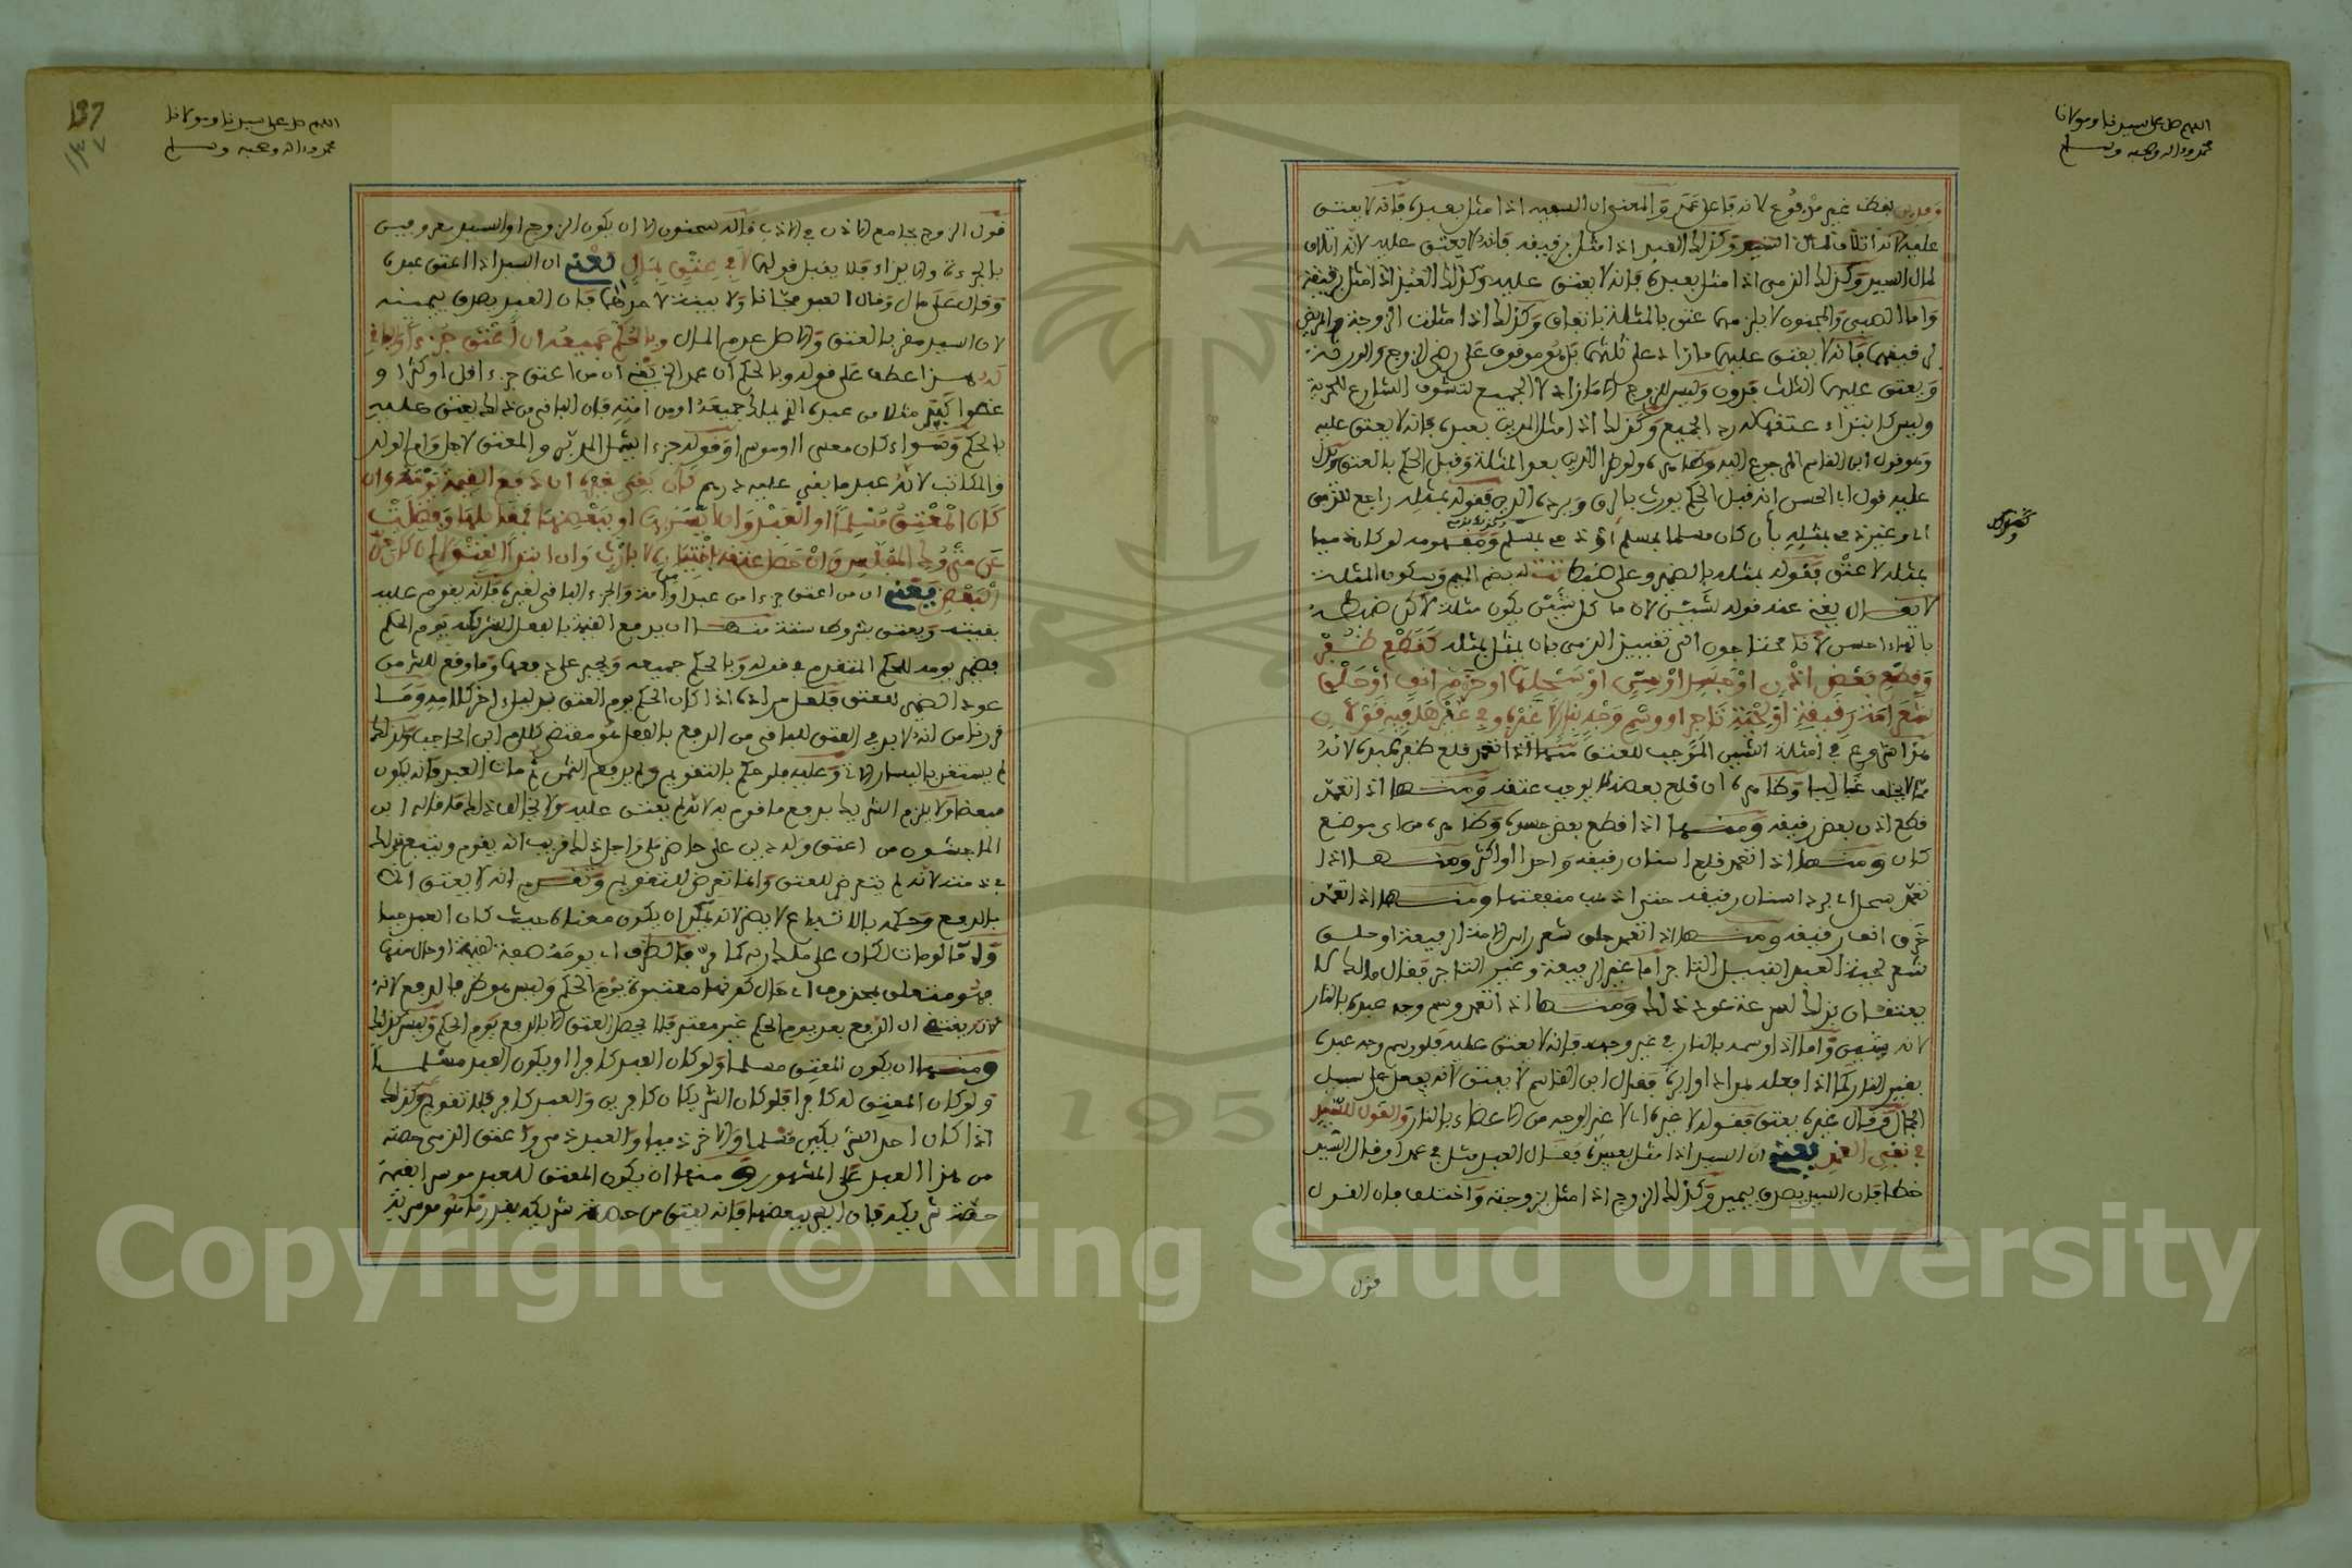 اللهم صل على سيدنا ومولانا
محمد وءاله وصحبه وسلم
ومدين بعطف غير مرفوع لانه فاعل عتق والمعنى ان السفيه اذا مثل بعبده فانه لا يعتق
عليه لانه اتلاف لمال وكذلك العبد اذا مثل برقيقه فانه لا يعتق عليه لانه اتلاف
لمال السيد وكذلك الذمي اذا مثل بعبده فانه لا يعتق عليه وكذلك العبد اذا مثل برقيقه
واما الصبي والمجنون لا يلزمهما عتق بالمثلة باتفاق وكذلك اذا مثلت الزوجة والمريض
في رقيقهما فانه لا يعتق عليهما ما زاد على ثلثهما بل هو موقوف على رضى الزوج والورثة
ويعتق عليهما الثلث فدون وليس للزوج الا ما زاد لا الجميع لتشوف الشارع للحرية
وليس كابتداء عتقها كرد الجميع وكذلك اذا مثل المدين بعبده فانه لا يعتق عليه
وهو قول ابن القاسم المرجوع اليه وظاهره ولو طرا الدين بعد المثلة وقبل الحكم بالعتق ويدل
عليه قول ابي الحسن انه قبل الحكم يورث بالرق ويرده الدين فقوله بمثله راجع للذمي
اي وغير ذمي بمثله بان كان مسلما بمسلم او ذمي بمسلم ومفهومه لو كان ذميا
بمثله لا عتق فقوله بمثله بالضمير وعلى ضبط تت له بضم الميم وسكون المثلثة
لا يقال يغني عنه قوله لشين لان ما كل شين يكون مثلة لاكن ضبطه
بالهاء احسن لانا محتاجون الى تقييد الذمي بان يمثل بمثله كقطع ظفر
وقطع بعض اذن او جسد او سن او سحلها او خرم انف او حلق
شعر امة رفيعة او لحية تاجر او وسم وجه بنار لا غيره وفي غيرها فيه قولان
هذا شروع في امثلة الشين الموجب للعتق منها اذا تعمد قلع ظفر عبده لانه
لا يخلف غالبا وظاهره ان قلع بعضه لا يوجب عتقه ومنها اذا تعمد
قطع اذن بعض رقيقه ومنها اذا قطع بعض جسده وظاهره من اي موضع
كان ومنها اذا تعمد قلع اسنان رقيقه واحدا او اكثر ومنها اذا
تعمد سحل اي برد اسنان رقيقه حتى اذهب منفعتها ومنها اذا تعمد
خرم انف رقيقه ومنها اذا تعمد حلق شعر راس الامة الرفيعة او حلق
شعر لحية العبد النبيل التاجر اما غير الرفيعة وغير التاجر فقال مالك لا
يعتقان بذلك لسرعة عود ذلك ومنها اذا تعمد وسم وجه عبده بالنار
لانه يشين واما اذا وسمه بالنار في غير وجهه فانه لا يعتق عليه فلو وسم وجه عبده
بغير النار كما اذا فعله بمداد او ابرة فقال ابن القاسم لا يعتق لانه يفعل على سبيل
الجمال وقال غيره يعتق فقوله لا غيره اي لا غير الوجه من الاعضاء بالنار والقول للسيد
في نفي العمد يعني ان السيد اذا مثل بعبده فقال العبد مثل بي عمدا وقال السيد
خطا فان السيد يصدق بيمين وكذلك الزوج اذا مثل بزوجته واختلف فان القول
قول
137
١٣٧
اللهم صل على سيدنا ومولانا
محمد وءاله وصحبه وسلم
قول الزوج بجامع الاذن في الادب قاله سحنون الا ان يكون الزوج او السيد معروفين
بالجرءة والايذاء فلا يقبل قولهما لا في عتق بمال يعني ان السيد اذا اعتق عبده
وقال على مال وقال العبد مجانا ولا بينة لاحدهما فان العبد يصدق بيمينه
لان السيد مقر بالعتق والاصل عدم المال وبالحكم جميعه ان اعتق جزءا والباقي
له هذا عطف على قوله وبالحكم ان عمد الخ يعني ان من اعتق جزءا اقل او كثر او
عضوا كيد مثلا من عبده الذي يملك جميعه او من امته فان الباقي من ذلك يعتق عليه
بالحكم وسواء كان معسرا او موسرا وقوله جزءا يشمل المدبر والمعتق لاجل وام الولد
والمكاتب لانه عبد ما بقي عليه درهم كان بقي لغيره ان دفع القيمة يومه وان
كان المعتق مسلما او العبد وان ايسر بها او ببعضها فمقابلها وفضلت
عن متروك المفلس وان حصل عتقه باختياره لا بارث وان ابتدا العتق لا ان كان حر
البعض يعني ان من اعتق جزءا من عبد او امة والجزء الباقي لغيره فانه يقوم عليه
بقيته ويعتق بشروط ستة منها ان يدفع القيمة بالفعل لشريكه يوم الحكم
فضمير يومه للحكم المتقدم في قوله وبالحكم جميعه ويجبر على دفعها وما وقع للشرح من
عود الضمير للعتق فلعل مراده اذا كان الحكم يوم العتق بدليل ءاخر كلامه وما
قررنا من انه لا بد في العتق للباقي من الدفع بالفعل هو مقتضى كلام ابن الحاجب وكذلك
لم يستغن باليسار الاتي وعليه فلو حكم بالتقويم ولم يدفع الثمن ثم مات العبد فانه يكون
مبعضا ولا يلزم الشريك بدفع ما قوم به لانه لم يعتق عليه ولا يخالف ذلك ما قاله ابن
الماجشون من اعتق ولد دين على حاضر ملي واجل ذلك قريب انه يقوم ويتبع بذلك
في ذمته لانه لم يتعرض للعتق وانما تعرض للتقويم وتقدم انه لا يعتق الا
بالدفع وحكمه بالاتباع لا يضر لانه يمكن ان يكون معناه حيث كان العبد حيا
والا فالومات لكان على ملك ربه كما مر فالظرف اي يومه صفة لقيمة او حال منها
فهو متعلق بمحذوف اي حال كونها معتبرة يوم الحكم وليس هو ظرفا لدفع لانه
لانه يقتضي ان الدفع بعد يوم الحكم غير معتبر فلا يحصل العتق الا بالدفع يوم الحكم وليس كذلك
ومنها ان يكون المعتق مسلما ولو كان العبد كافرا او يكون العبد مسلما
ولو كان المعتق له كافرا فلو كان الشريكان كافرين والعبد كافر فلا تقويم وكذلك
اذا كان احد الشريكين مسلما والاخر ذميا والعبد ذمي واعتق الذمي حصته
من هذا العبد على المشهور ومنها ان يكون المعتق للعبد موسرا بقيمة
حصة شريكه فان ايسر ببعضها فانه يعتق من حصة شريكه بقدر ما هو موسر به